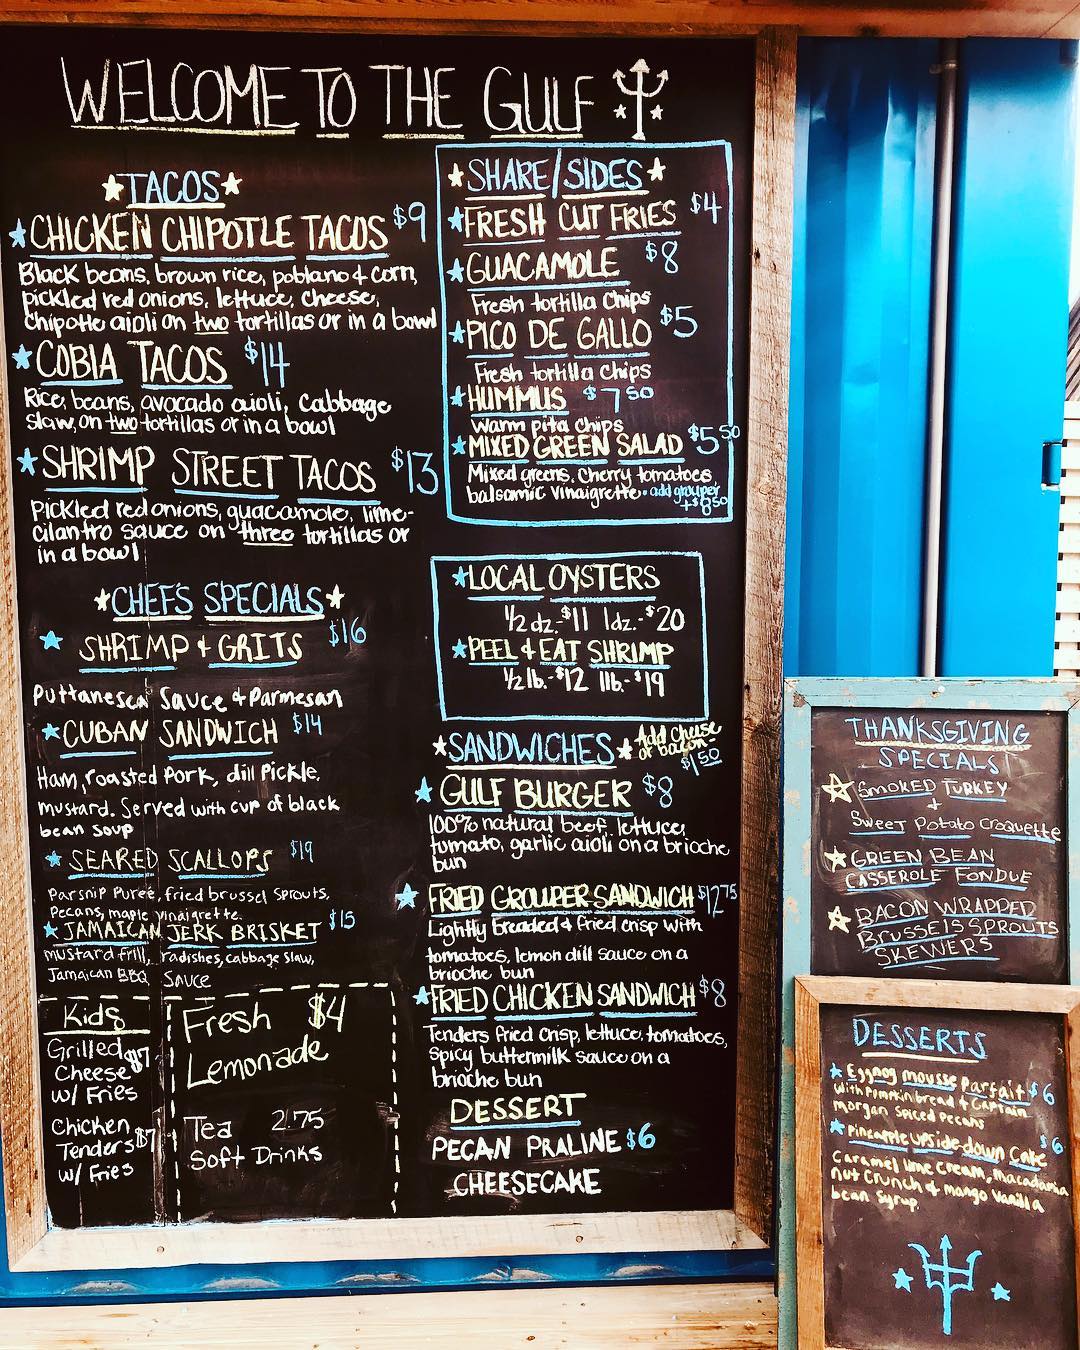 WELCOME TO THE GULF
TACOS
CHICKEN CHIPOTLE TACOS $9
Black beans, brown rice, poblano & corn,
pickled red onions, lettuce, cheese,
chipotle aioli on two tortillas or in a bowl
COBIA TACOS $14
Rice, beans, avocado aioli, cabbage
slaw, on two tortillas or in a bowl
SHRIMP STREET TACOS $13
Pickled red onions, guacamole, lime-
cilantro sauce on three tortillas or
in a bowl
CHEF'S SPECIALS
SHRIMP & GRITS $16
Puttanesca Sauce & Parmesan
CUBAN SANDWICH $14
Ham, roasted Pork, dill Pickle,
mustard. Served with cup of black
bean soup
SEARED SCALLOPS $19
Parsnip Pureé, fried brussel sprouts,
Pecans, maple vinaigrette.
JAMAICAN JERK BRISKET $15
mustard frill, radishes, cabbage slaw,
Jamaican BBQ Sauce
Kids
Grilled
Cheese $7
w/ Fries
Chicken
Tenders $7
w/ Fries
Fresh $4
Lemonade
Tea 2.75
Soft Drinks
SHARE/SIDES
FRESH CUT FRIES $4
GUACAMOLE $8
Fresh tortilla chips
PICO DE GALLO $5
Fresh tortilla chips
HUMMUS $7.50
warm pita chips
MIXED GREEN SALAD $5.50
Mixed greens, cherry tomatoes,
balsamic vinaigrette • add grouper
+$8.50
LOCAL OYSTERS
1/2 dz.-$11 1dz.-$20
PEEL & EAT SHRIMP
1/2 lb.-$12 1lb.-$19
SANDWICHES
Add cheese
or bacon-
$1.50
GULF BURGER $8
100% natural beef, lettuce,
tomato, garlic aioli on a brioche
bun
FRIED GROUPER SANDWICH $12.75
Lightly breaded & fried crisp with
tomatoes, lemon dill sauce on a
brioche bun
FRIED CHICKEN SANDWICH $8
Tenders fried crisp, lettuce, tomatoes,
spicy buttermilk sauce on a
brioche bun
DESSERT
PECAN PRALINE $6
CHEESECAKE
THANKSGIVING
SPECIALS!
SMOKED TURKEY
&
Sweet Potato Croquette
GREEN BEAN
CASSEROLE FONDUE
BACON WRAPPED
BRUSSELS SPROUTS
SKEWERS
DESSERTS
Eggnog mousse Parfait $6
with Pumpkin bread & Captain
Morgan Spiced Pecans
Pineapple upside-down Cake $6
Caramel lime cream, macadamia
nut Crunch & mango Vanilla
bean Syrup.